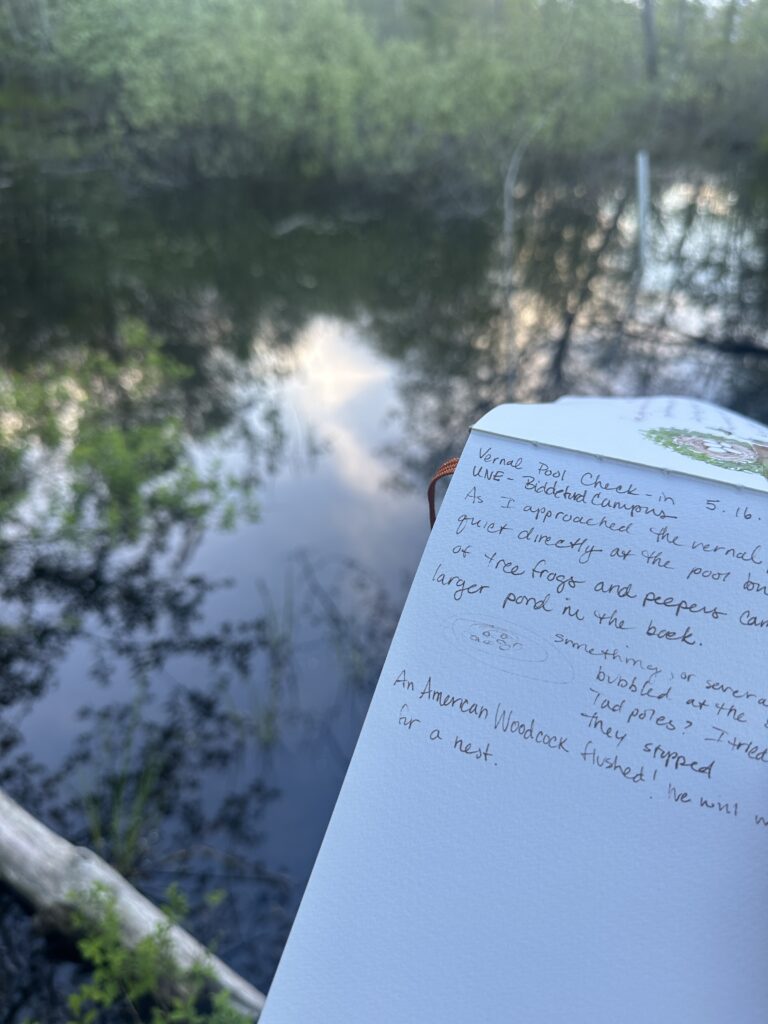 Vernal Pool Check-in 5.16.
UNE - Biddeford Campus
As I approached the vernal
quiet directly at the pool
of tree frogs and peepers
larger pond in the back.
something, or
bubbled at the
Tadpoles? I tried
they stopped
An American Woodcock flushed! We will
for a nest.